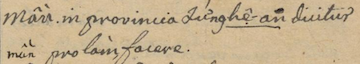 Mần. in provincia Nghệ-an dicitur
mần pro làm facere.